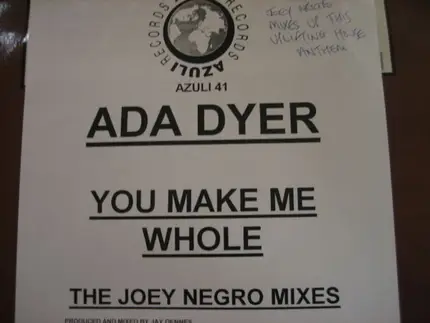 AZULI RECORDS
RECORDS
JOEY NEGRO
MIXES OF THIS
UPLIFTING HOUSE
ANTHEM
AZULI 41
ADA DYER
YOU MAKE ME
WHOLE
THE JOEY NEGRO MIXES
PRODUCED AND MIXED BY JAY DENNES